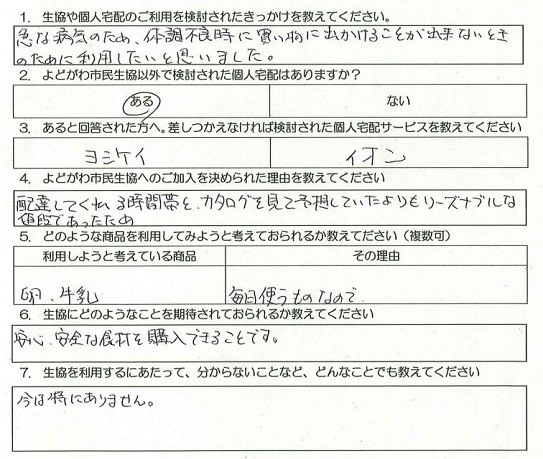 1. 生協や個人宅配のご利用を検討されたきっかけを教えてください。
急な病気のため、体調不良時に買い物に出かけることが出来ないとき
のために利用したいと思いました。
2. よどがわ市民生協以外で検討された個人宅配はありますか？
ある ない
3. あると回答された方へ。差しつかえなければ検討された個人宅配サービスを教えてください
ヨシケイ イオン
4. よどがわ市民生協へのご加入を決められた理由を教えてください
配達してくれる時間帯と、カタログを見て予想していたよりもリーズナブルな
値段であったため
5. どのような商品を利用してみようと考えておられるか教えてださい（複数可）
利用しようと考えている商品 その理由
卵、牛乳 毎日使うものなので
6. 生協にどのようなことを期待されておられるか教えてください
安心、安全な食材を購入できることです。
7. 生協を利用するにあたって、分からないことなど、どんなことでも教えてください
今は特にありません。